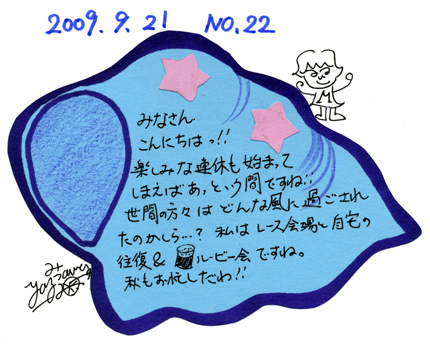 2009.9.21 NO.22
みなさん
こんにちはっ!!
楽しみな連休も始まって
しまえばあっという間ですね!!
世間の方々はどんな風に過ごされ
たのかしら…? 私はレース会場と自宅の
往復& ルービー会ですね。
秋もお忙しだわ!!
M